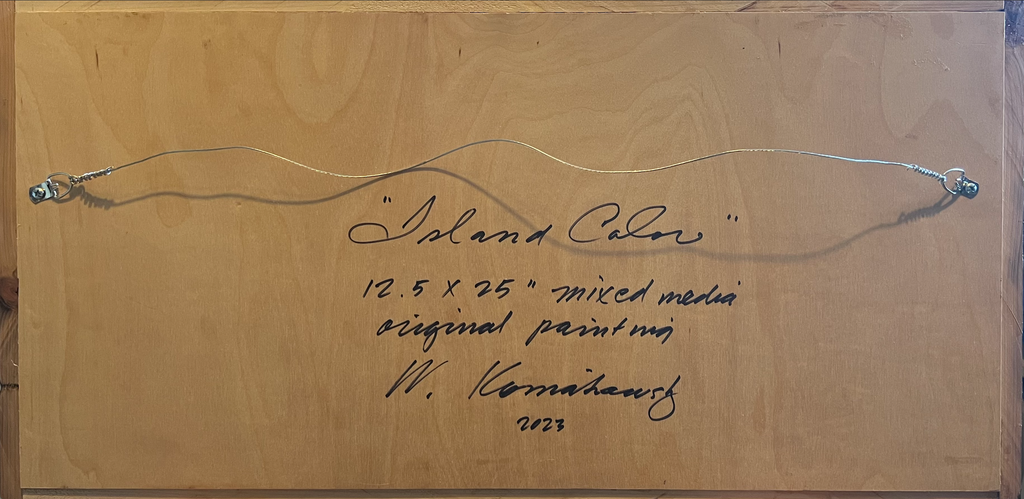 "Island Color"
12.5 X 25" mixed media
original painting
W.
2023